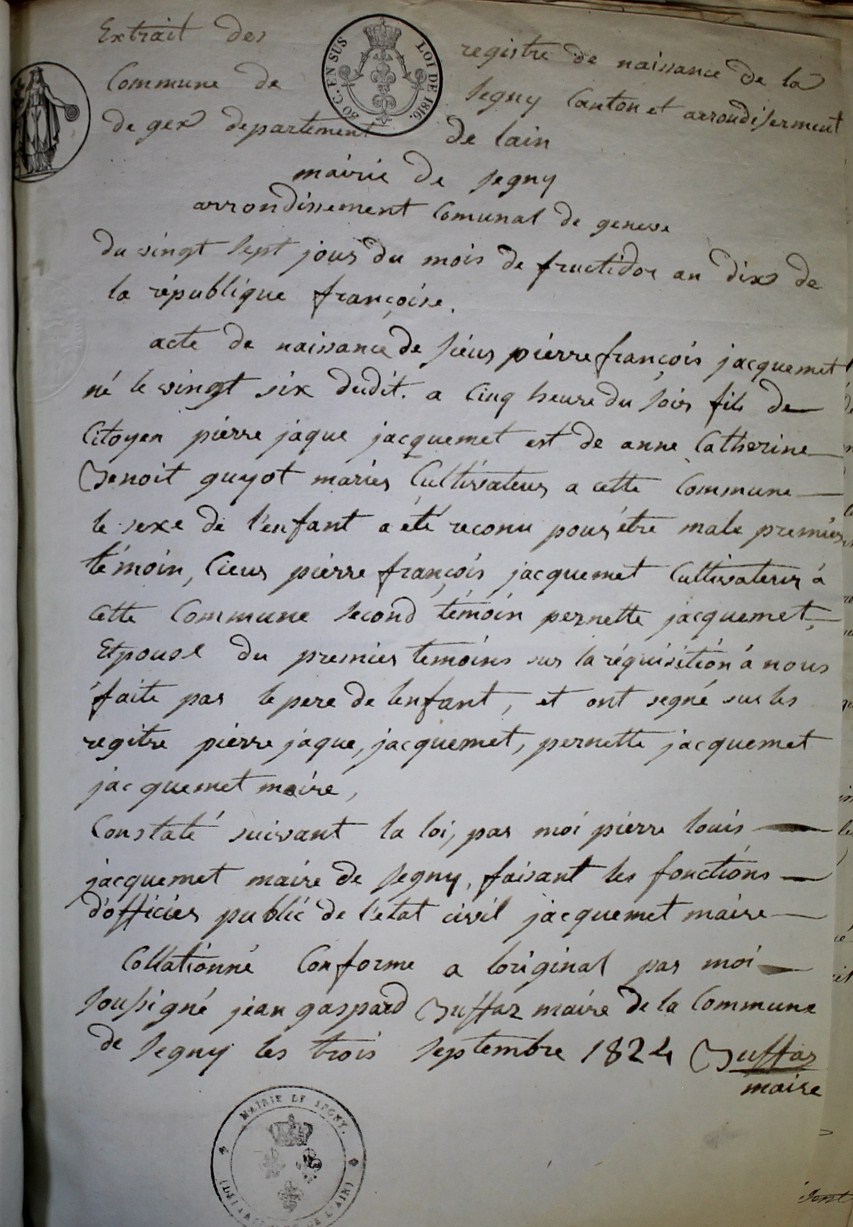 Extrait des registre de naissance de la
Commune de Segny Canton et arrondiserment
de gex departement de lain
50 C. EN SUS
LOI DE 1816.
mairie de Segny
arrondissement Comunal de geneve
du vingt Sept jours du mois de fructidor an dix de
la république françoise.
acte de naissance de Sieur pierre françois jacquemet
né le vingt six dudit. a Cinq heure du Soir fils de
Citoyen pierre jaque jacquemet est de anne Catherine
Benoit guyot mariés Cultivateur a cette Commune
le sexe de l'enfant a été reconu pour être male premier
témoin, Cieur pierre françois jacquemet Cultivateur à
cette Commune Second témoin pernette jacquemet,
Etpouse du premier temoins sur la réquisition à nous
faite par le pere de lenfant, et ont segné sur les
regitre pierre jaque, jacquemet, pernette jacquemet
jacquemet maire,
Constaté suivant la loi, par moi pierre louis
jacquemet maire de Segny, faisant les fonctions
d'officier public de l'état civil jacquemet maire
Collationné Conforme a loriginal par moi
Soussigné jean gaspard Buffaz maire de la Commune
de Segny les trois Septembre 1824 Buffaz
maire
MAIRIE DE SEGNY.